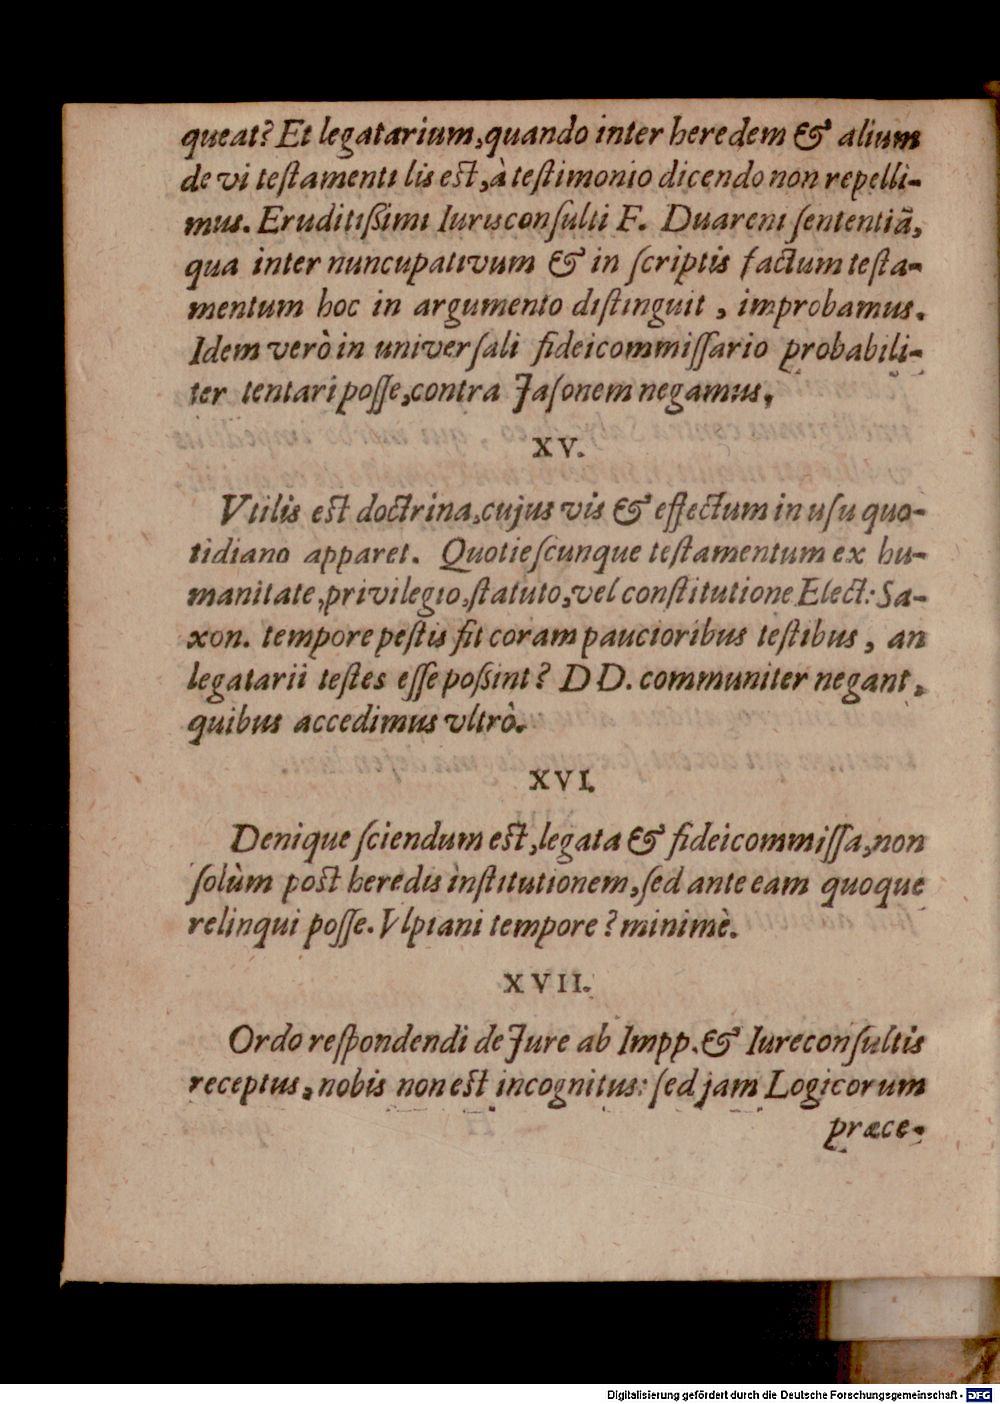 queat? Et legatarium, quando inter heredem & alium
de vi testamenti lis est, à testimonio dicendo non repelli-
mus. Eruditißimi Iurisconsulti F. Duareni sententiã,
qua inter nuncupativum & in scriptis factum testa-
mentum hoc in argumento distinguit, improbamus.
Idem verò in universali fideicommissario probabili-
ter tentari posse, contra Jasonem negamus.
XV.
Vtilis est doctrina, cujus vis & effectum in usu quo-
tidiano apparet. Quotiescunque testamentum ex hu-
manitate, privilegio, statuto, vel constitutione Elect: Sa-
xon. tempore pestis fit coram paucioribus testibus, an
legatarii testes esse poßint? DD. communiter negant,
quibus accedimus vltrò.
XVI.
Denique sciendum est, legata & fideicommissa, non
solùm post heredis institutionem, sed ante eam quoque
relinqui posse. Vlpiani tempore? minimè.
XVII.
Ordo respondendi de Jure ab Impp. & Iureconsultis
receptus, nobis non est incognitus: sed jam Logicorum
præce-
Digitalisierung gefördert durch die Deutsche Forschungsgemeinschaft - DFG